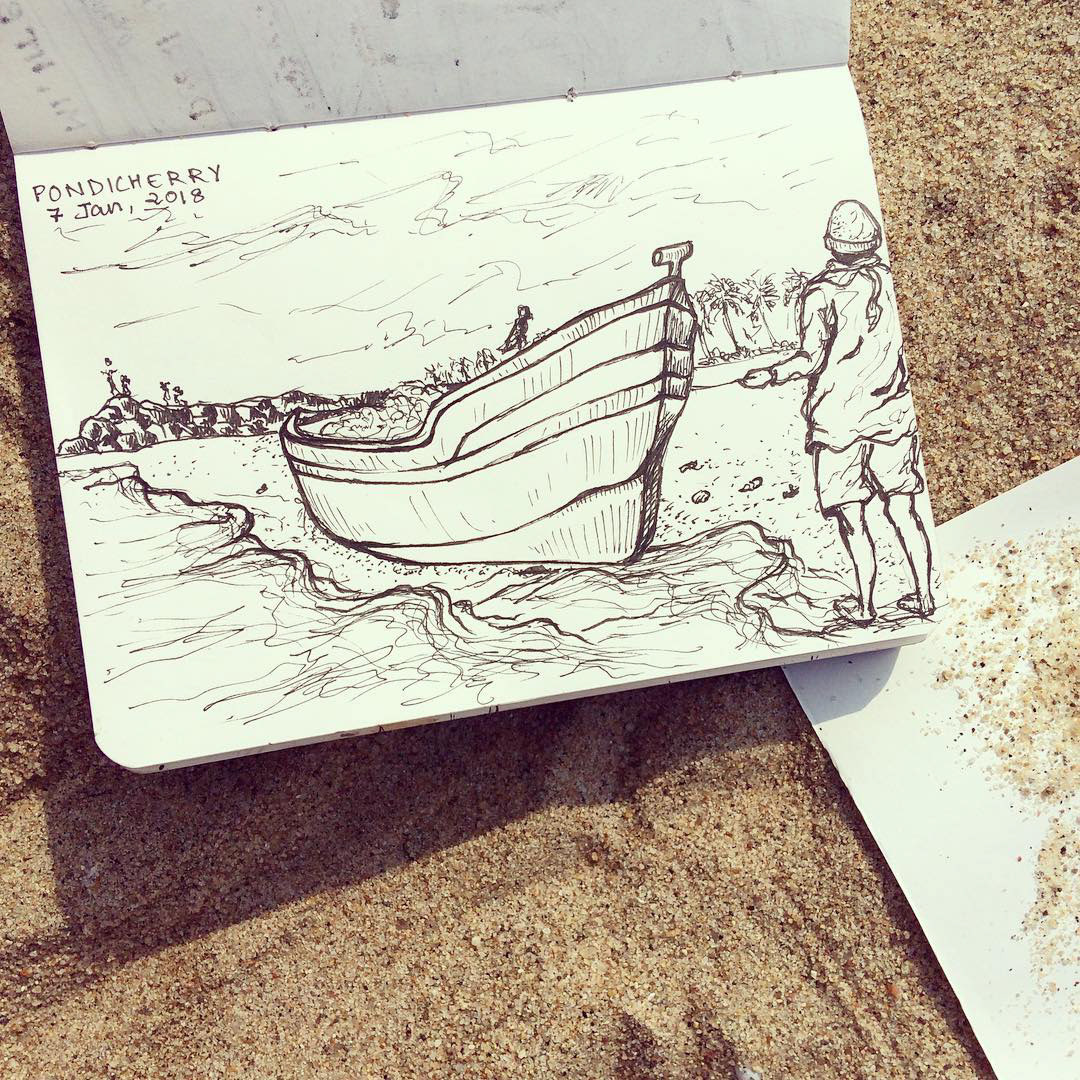 PONDICHERRY
7 Jan, 2018